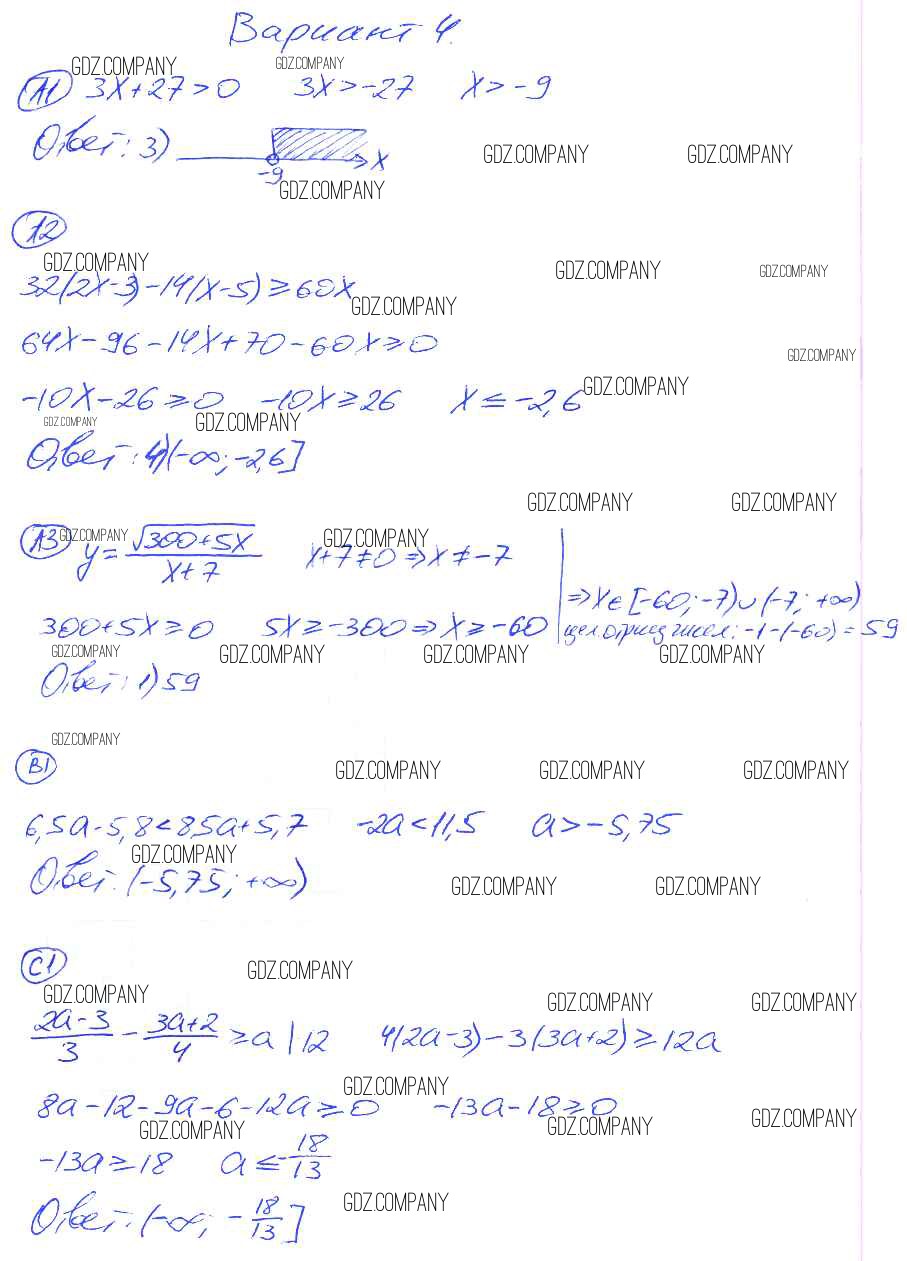 Вариант 4.
GDZ.COMPANY GDZ.COMPANY
А1 3x+27>0 3x>-27 x>-9
Ответ: 3) -9 x
GDZ.COMPANY GDZ.COMPANY
GDZ.COMPANY
А2
GDZ.COMPANY GDZ.COMPANY GDZ.COMPANY
32(2x-3)-14(x-5)≥60x
GDZ.COMPANY
64x-96-14x+70-60x≥0
GDZ.COMPANY
-10x-26≥0 -10x≥26 x≤-2,6
GDZ.COMPANY
GDZ.COMPANY GDZ.COMPANY
Ответ: 4)(-∞;-2,6]
GDZ.COMPANY GDZ.COMPANY
GDZ.COMPANY GDZ.COMPANY
А3 y=√(300+5x)/(x+7) x+7≠0⇒x≠-7
⇒x∈[-60;-7)∪(-7;+∞)
300+5x≥0 5x≥-300⇒x≥-60
цел.отриц чисел: -1-(-60)=59
GDZ.COMPANY GDZ.COMPANY GDZ.COMPANY GDZ.COMPANY
Ответ: 1)59
GDZ.COMPANY
В1
GDZ.COMPANY GDZ.COMPANY GDZ.COMPANY
6,5a-5,8<8,5a+5,7 -2a<11,5 a>-5,75
GDZ.COMPANY
Ответ: (-5,75;+∞)
GDZ.COMPANY GDZ.COMPANY
С1
GDZ.COMPANY
GDZ.COMPANY GDZ.COMPANY GDZ.COMPANY
(2a-3)/3 - (3a+2)/4 ≥a |12 4(2a-3)-3(3a+2)≥12a
GDZ.COMPANY
8a-12-9a-6-12a≥0 -13a-18≥0
GDZ.COMPANY GDZ.COMPANY GDZ.COMPANY
-13a≥18 a≤-18/13
GDZ.COMPANY
Ответ: (-∞; -18/13]